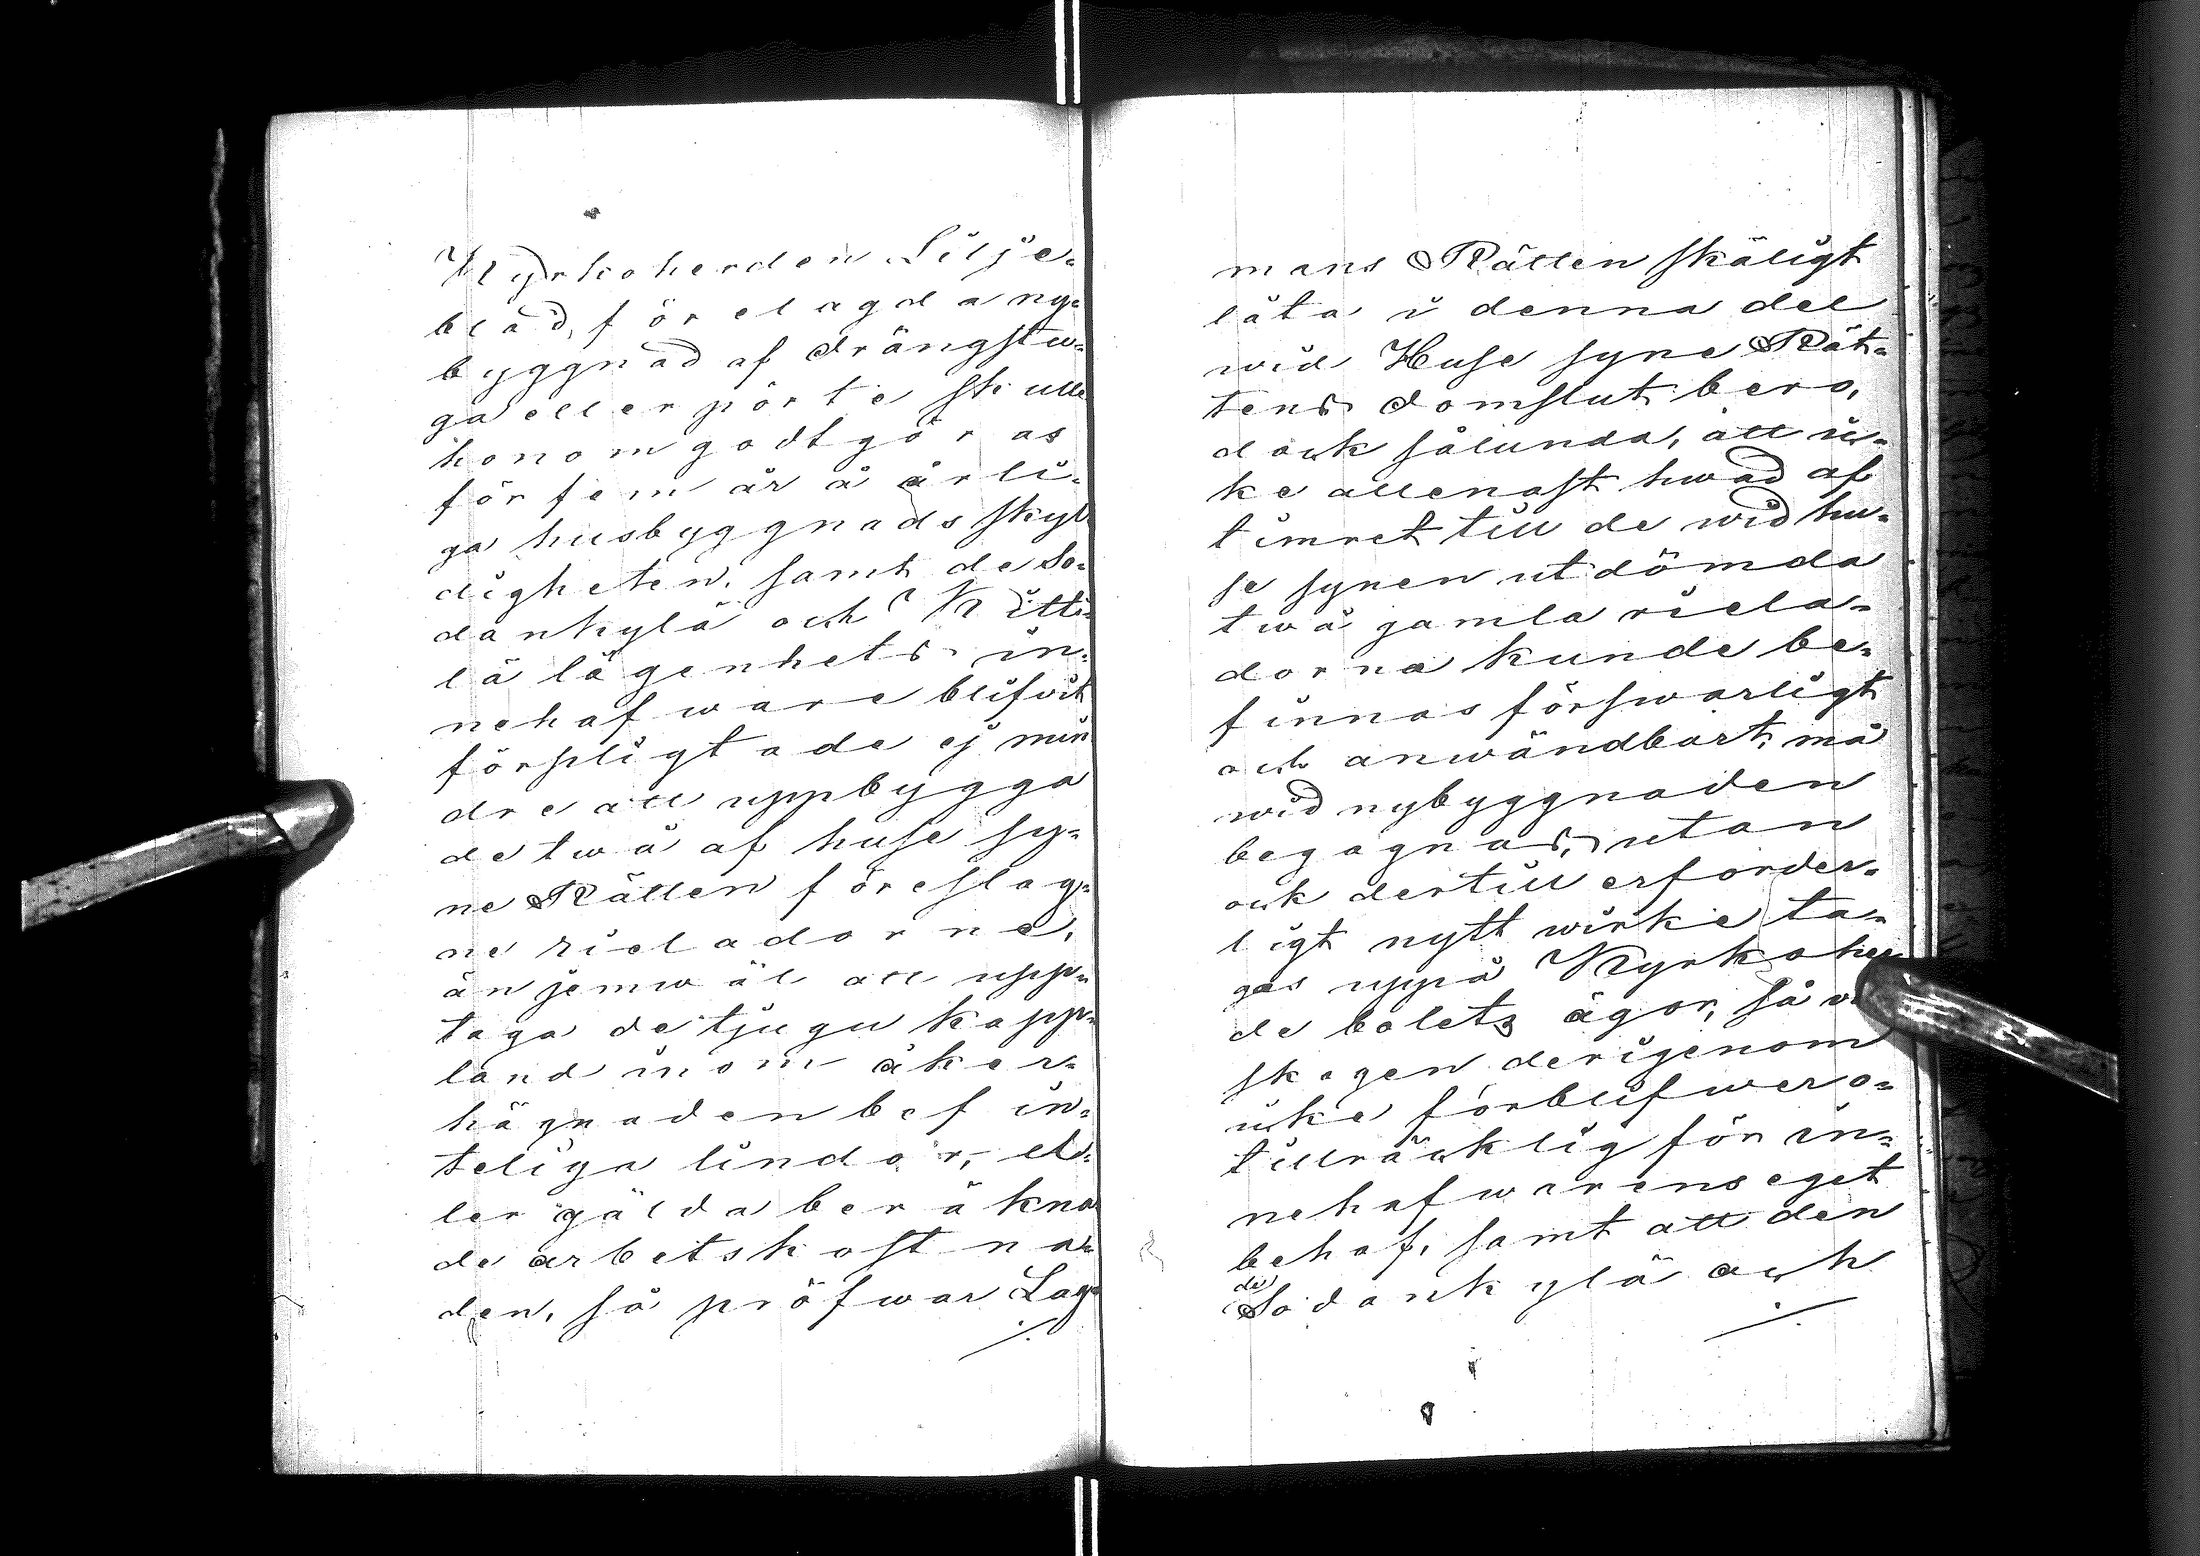 Kyrkoherden Lilje-
blad, förelagda ny-
byggnad af drängstu-
ga eller pörte skulle
honom godtgöras
för fem år å årli-
ga husbyggnads skyl-
digheten, samt de So-
dankylä och Kitti-
lä lägenhets in-
nehafware blifvit
förpligtade ej min
dre att uppbygga
de twå af huse sy-
ne Rätten föreslag-
ne rieladorne,
än jemwäl att upp-
taga de tjugu kapp-
land inom åker-
hägnaden befin-
teliga lindor, el-
ler gälda beräkna
de arbetskostna-
den, så pröfwar Lag-
./.
mans Rätten skäligt
låta i denna del
wid Huse syne Rät-
tens domslut bero,
dock sålunda, att ic-
ke allenast hwad af
timret till de wid hu-
se synen utdömda
twå gamla riela-
dorna kunde be-
finnas förswarligt
och anwändbart, må
wid nybyggnaden
begagnas, utan
ock dertill erforder-
ligt nytt wirke ta-
gas uppå Kyrkoher
de bolets ägor, så
skogen derigenom
icke förblifwer o-
tillräcklig för in-
nehafwarens eget
behof, samt att den
de
Sodankylä och
./.